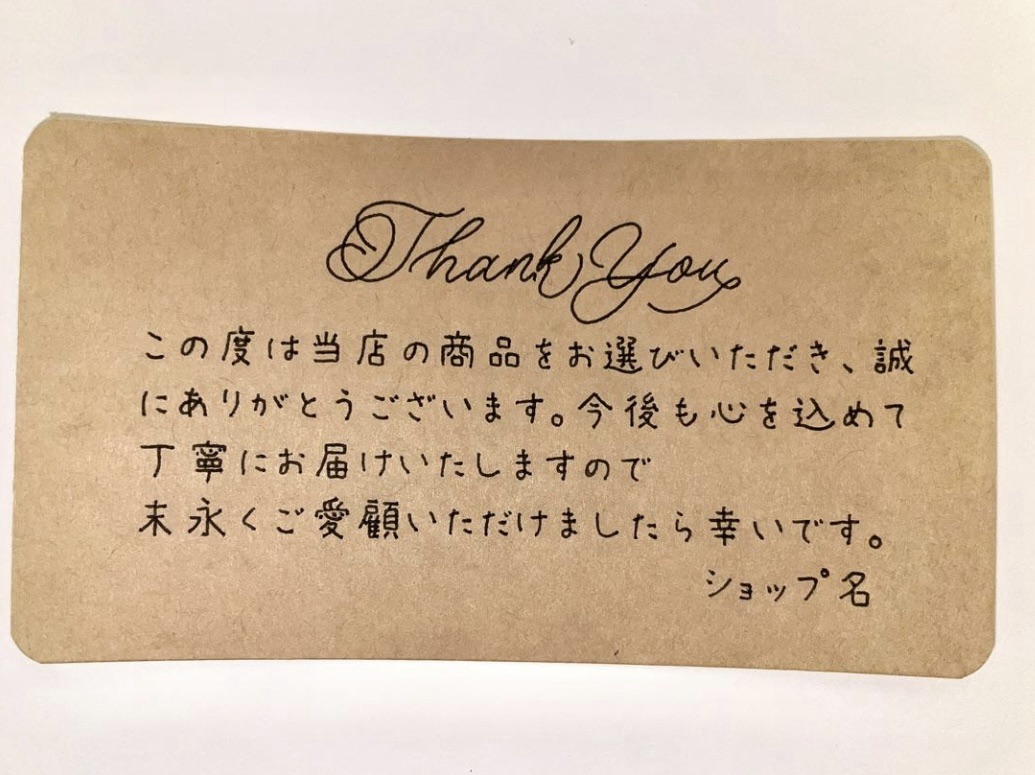 Thank You
この度は当店の商品をお選びいただき、誠
にありがとうございます。今後も心を込めて
丁寧にお届けいたしますので
末永くご愛顧いただけましたら幸いです。
ショップ名